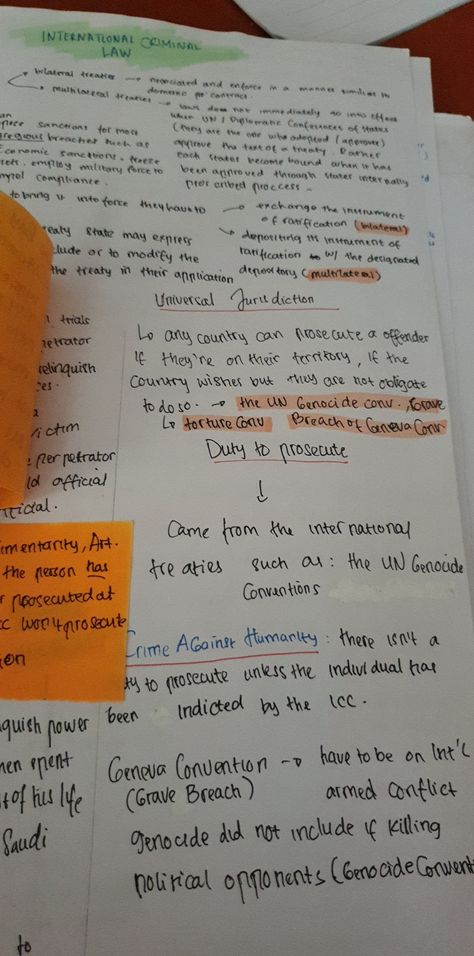 INTERNATIONAL CRIMINAL
LAW
bilateral treaties → negociated and enforce in a manner similiar to
domestic contract.
multilateral treaties → does not immediately go into effect
when UN / Diplomatic Conferences of States
(they are the one who adopted / approve)
approve the text of a treaty. Rather
each states become bound when it has
been approved through states internally
prescribed proccess -
sanctions for most
egregious breaches such as
economic sanctions, freeze
employ military force to
compel compliance.
to bring it into force they have to → exchange the instrument
of ratification (bilateral)
→ depositing its instrument of
ratification w/ the designated
depository (multilateral)
treaty state may express
or to modify the
the treaty in their application
Universal Jurisdiction
↳ any country can prosecute a offender
if they're on their territory, if the
country wishes but they are not obligate
to do so. → the UN Genocide conv., Grave
↳ torture conv Breach of Geneva Conv.
Duty to prosecute
↓
Came from the international
treaties such as: the UN Genocide
Conventions
Crime Against Humanity: there isn't a
to prosecute unless the individual has
been indicted by the ICC.
Geneva Convention → have to be on Int'l
(Grave Breach) armed conflict
genocide did not include if killing
political opponents (Genocide Convent
trials
relinquish
victim
perpetrator
official
Art.
the person has
prosecuted at
won't prosecute
power
spent
of his life
Saudi
to